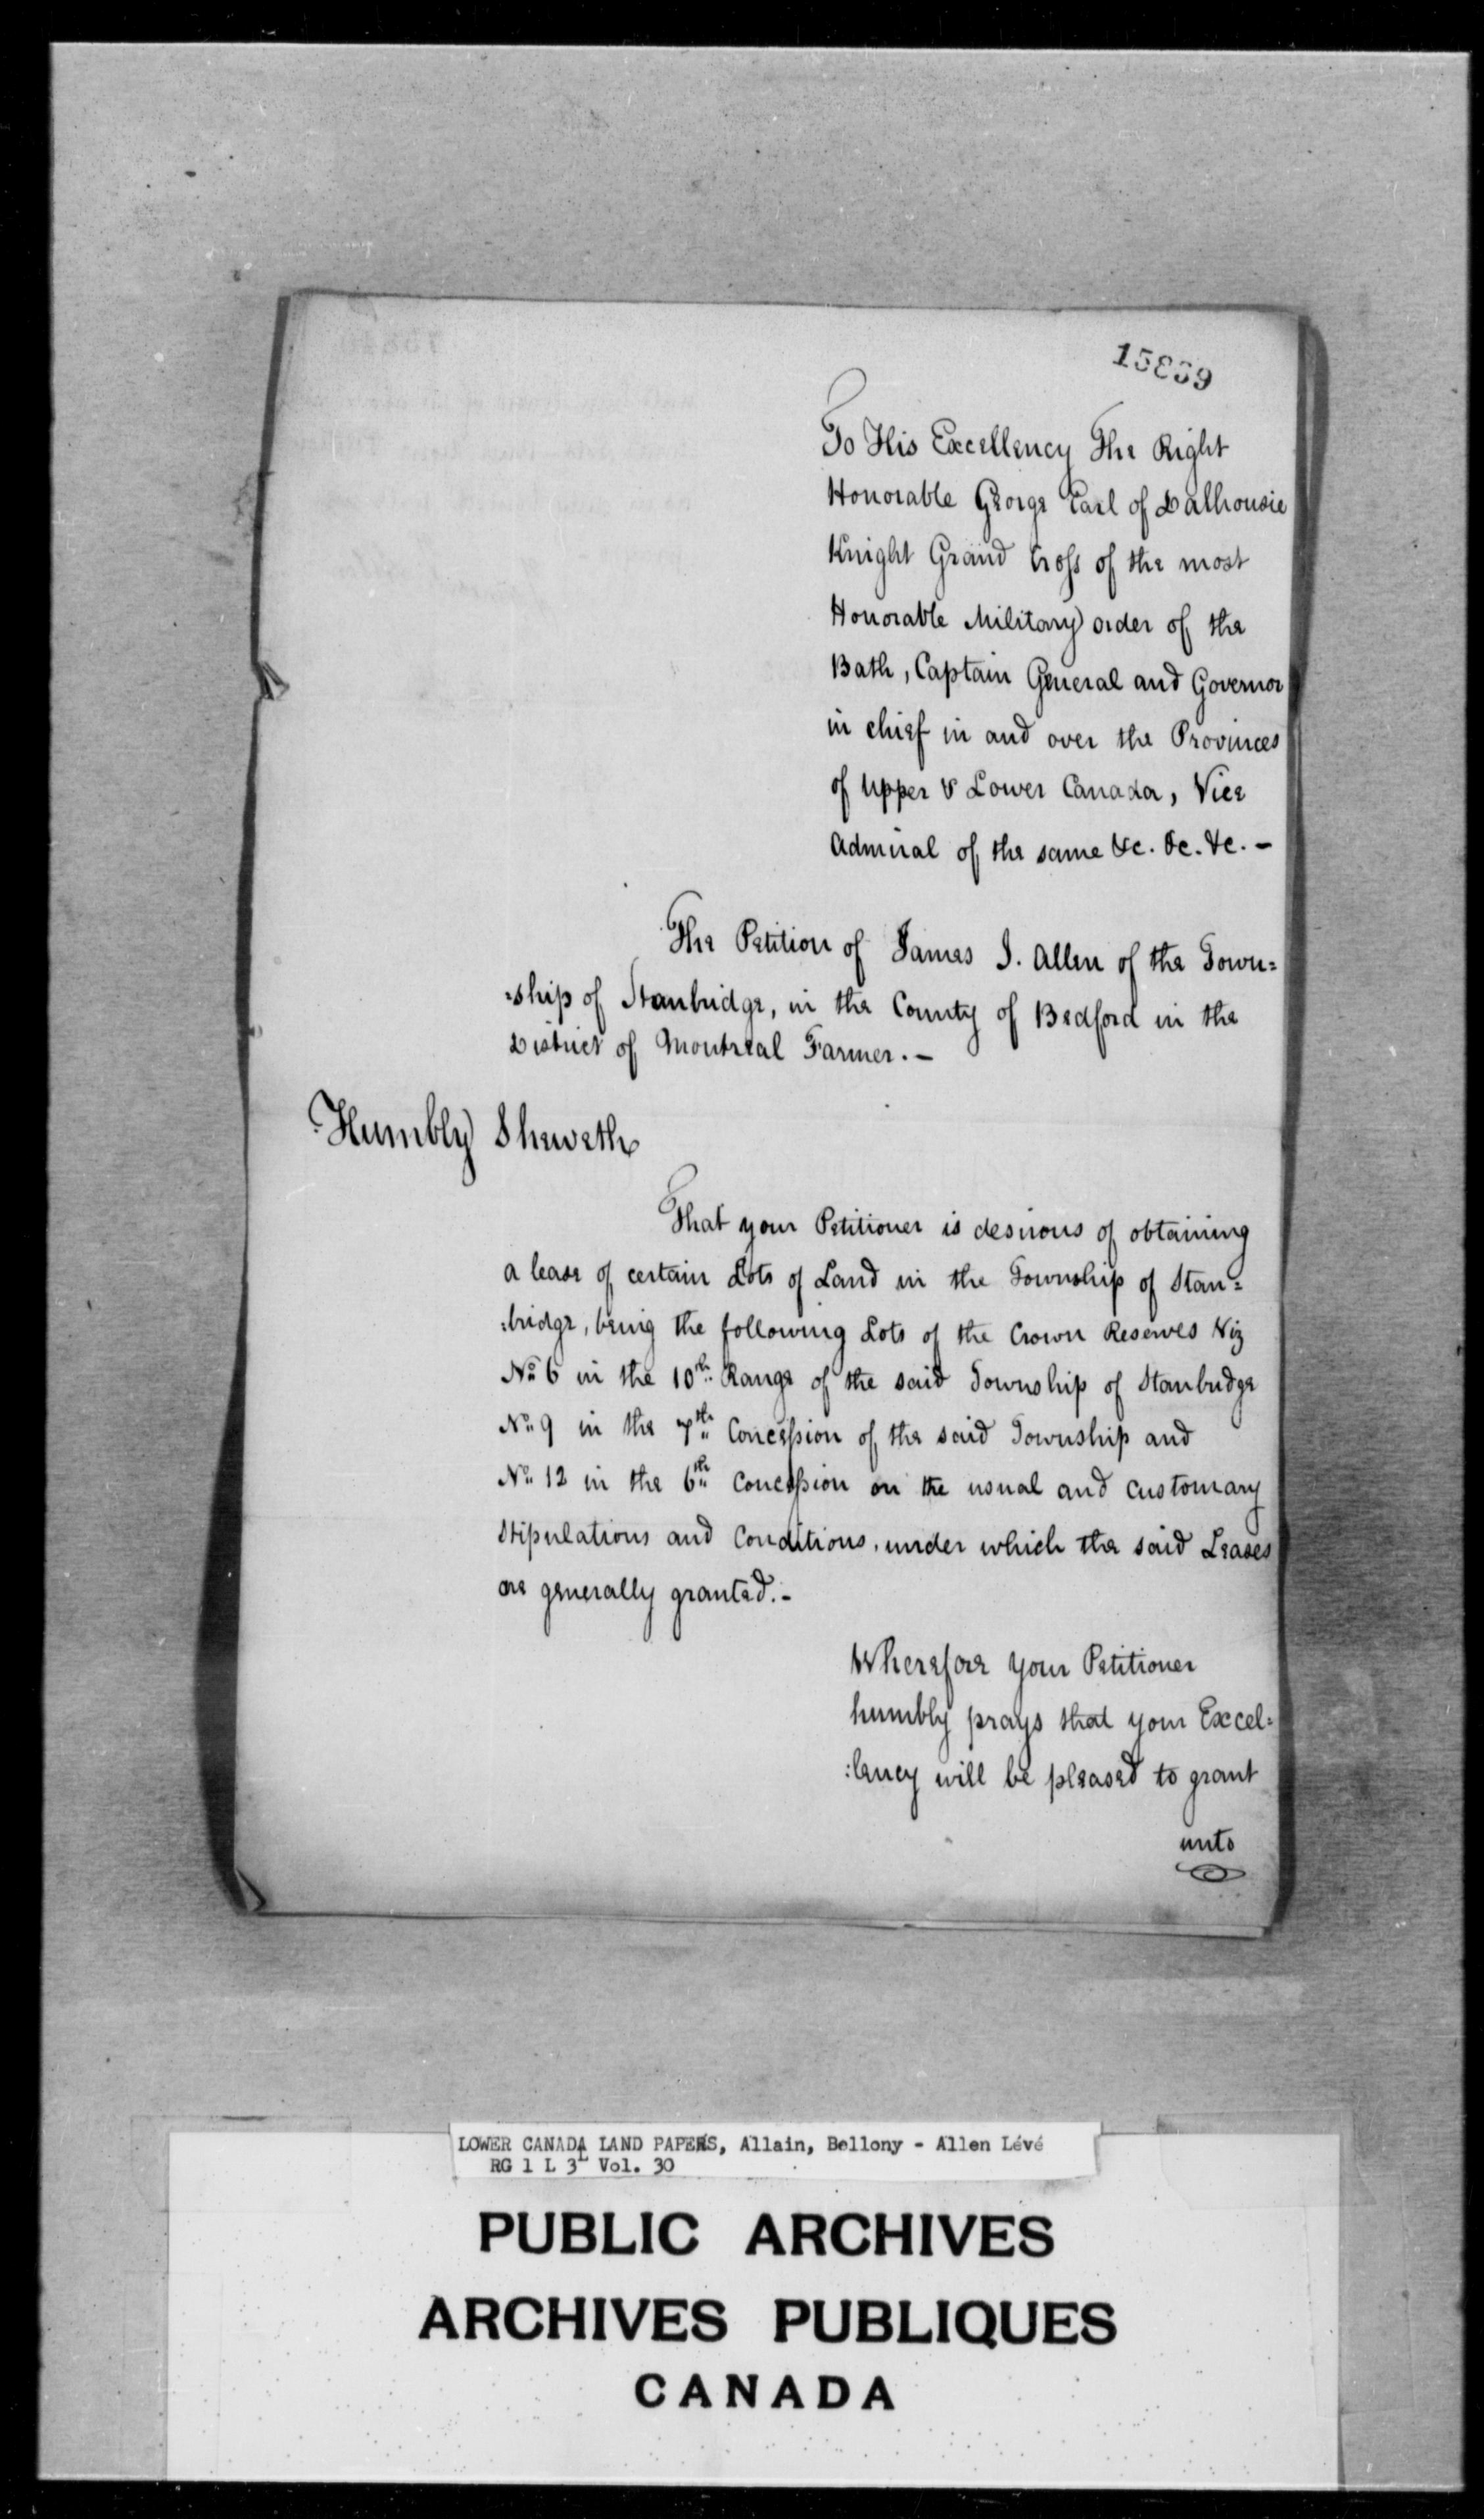 15869
To His Excellency The Right
Honorable George Earl of Dalhousie
Knight Grand Cross of the most
Honorable Military order of the
Bath, Captain General and Governor
in chief in and over the Provinces
of Upper & Lower Canada, Vice
Admiral of the same &c. &c. &c. -
The Petition of James J. Allen of the Town=
=ship of Stanbridge, in the County of Bedford in the
District of Montreal Farmer. -
Humbly Sheweth
That your Petitioner is desirous of obtaining
a lease of certain Lots of Land in the Township of Stan=
:bridge, being the following Lots of the Crown Reserves Viz
No 6 in the 10th Range of the said Township of Stanbridge
No 9 in the 7th Concession of the said Township and
No 12 in the 6th Concession on the usual and customary
Stipulations and Conditions, under which the said Leases
are generally granted. -
Wherefore your Petitioner
humbly prays that your Excel=
:lency will be pleased to grant
unto
LOWER CANADA LAND PAPERS, Allain, Bellony - Allen Lévé
RG 1 L 3L Vol. 30
PUBLIC ARCHIVES
ARCHIVES PUBLIQUES
CANADA